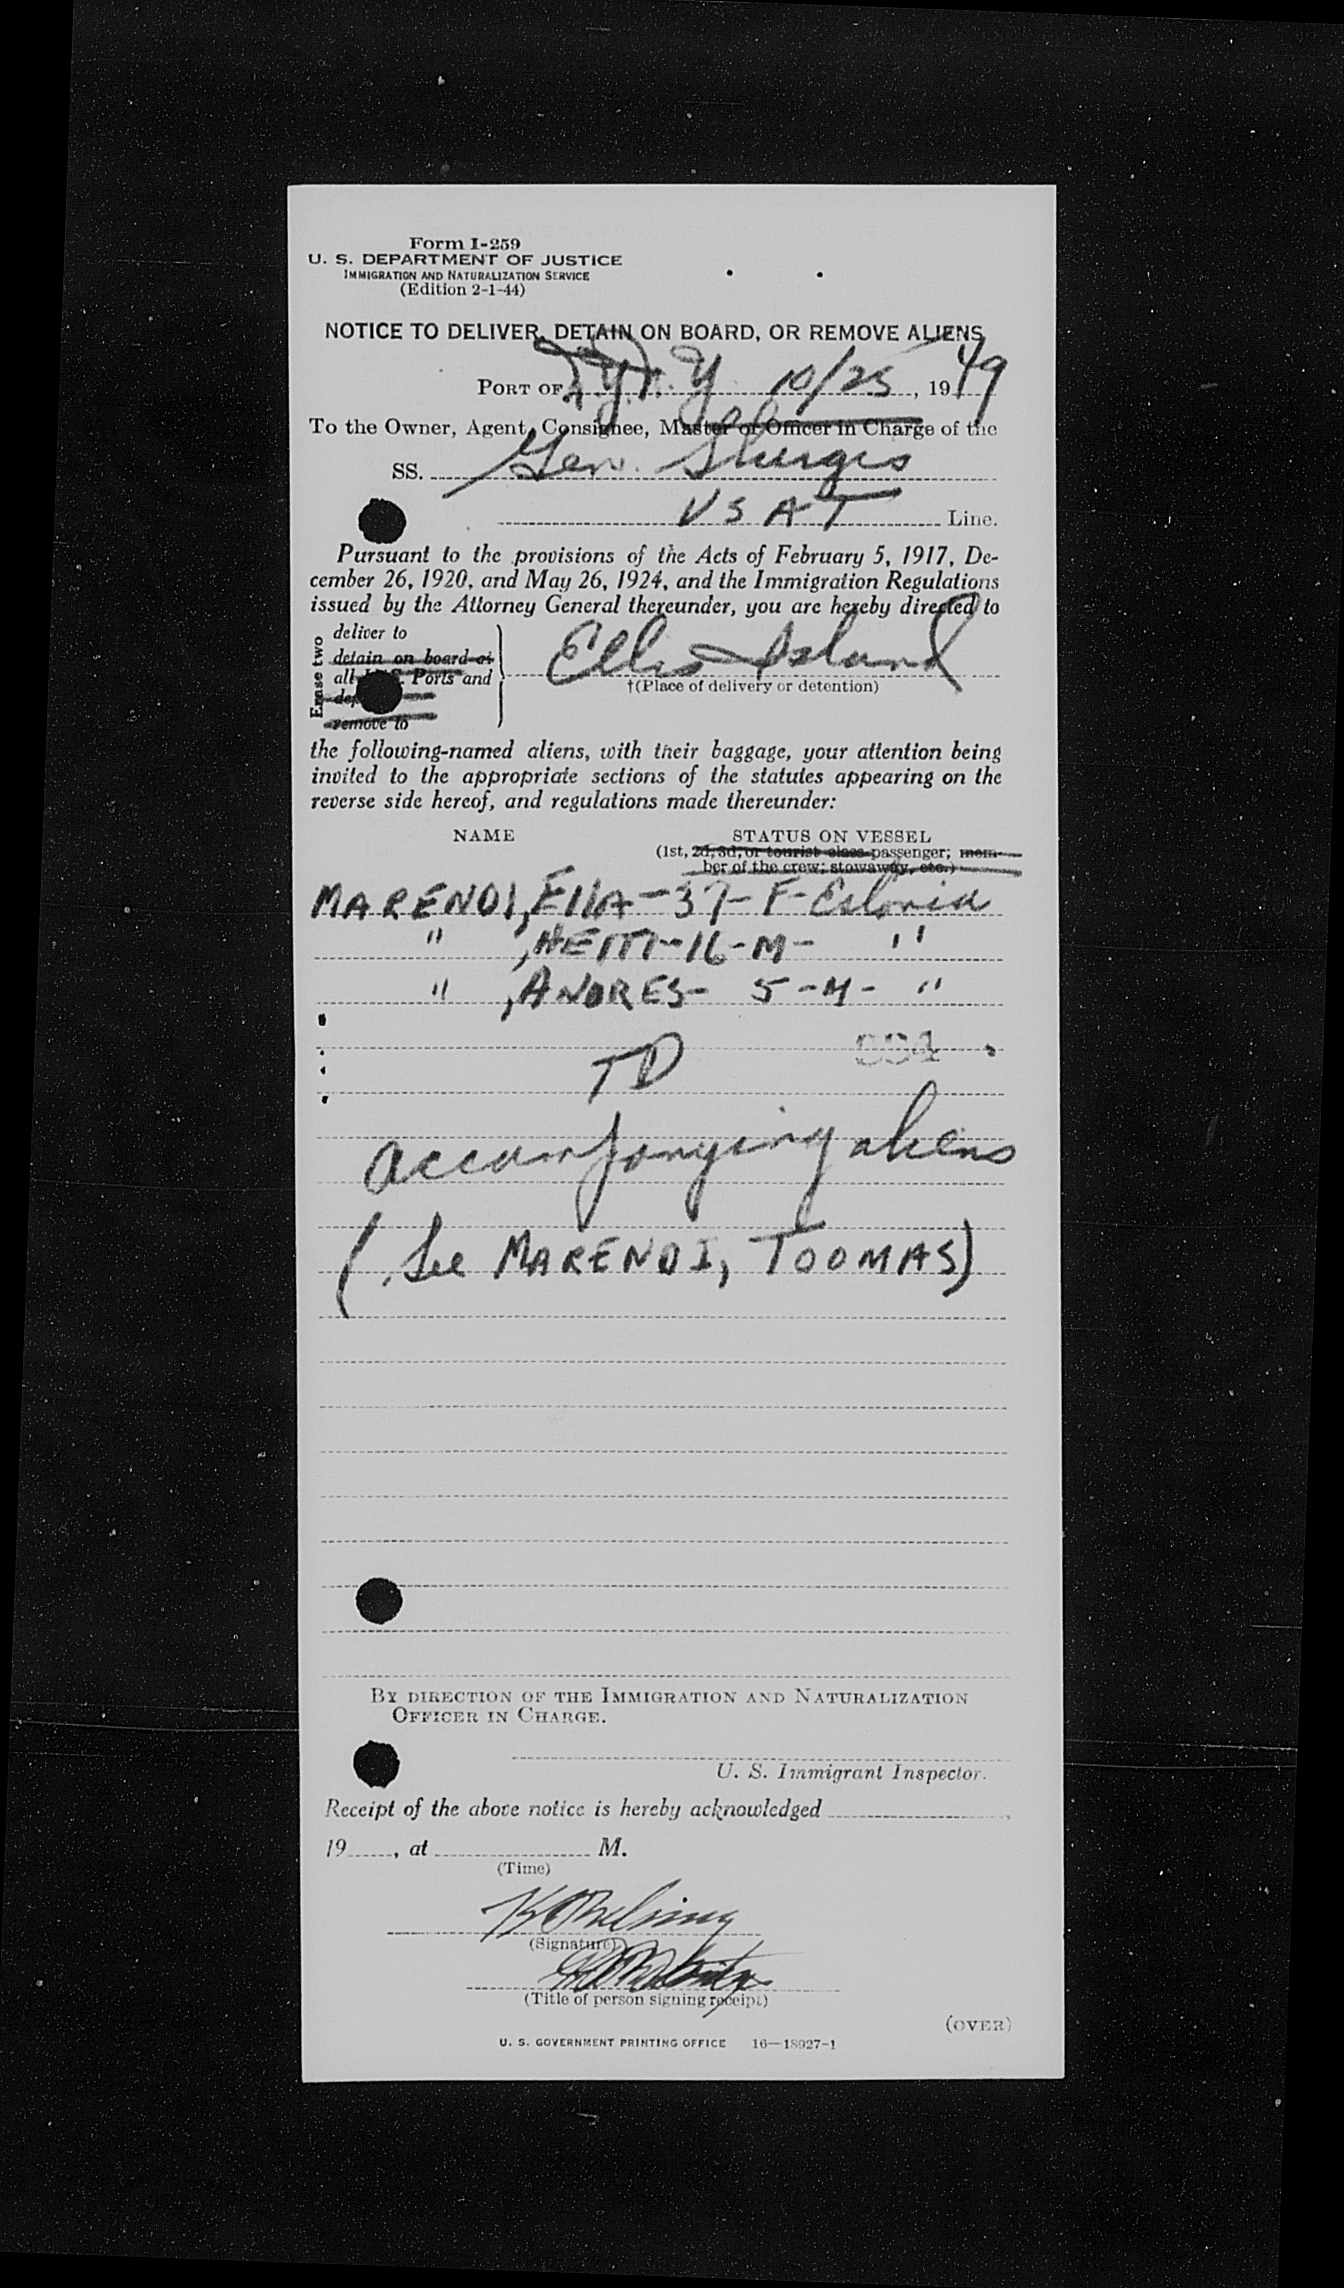 Form I-259
U. S. DEPARTMENT OF JUSTICE
IMMIGRATION AND NATURALIZATION SERVICE
(Edition 2-1-44)
NOTICE TO DELIVER, DETAIN ON BOARD, OR REMOVE ALIENS
PORT OF N.Y. N.Y. 10/25, 1949
To the Owner, Agent, Consignee, Master or Officer in Charge of the
SS. Gen. Sturgis
USAT Line.
Pursuant to the provisions of the Acts of February 5, 1917, De-
cember 26, 1920, and May 26, 1924, and the Immigration Regulations
issued by the Attorney General thereunder, you are hereby directed to
Erase two
deliver to
detain on board at
all U.S. Ports and
remove to
Ellis Island
†(Place of delivery or detention)
the following-named aliens, with their baggage, your attention being
invited to the appropriate sections of the statutes appearing on the
reverse side hereof, and regulations made thereunder:
NAME STATUS ON VESSEL
(1st, 2d, 3d, or tourist class passenger; mem-
ber of the crew; stowaway, etc.)
MARENDI, EllA - 37 - F - Estonia
" , HEITI - 16 - M - "
" , ANDRES - 5 - M - "
TD
accompanying aliens
(See MARENDI, TOOMAS)
BY DIRECTION OF THE IMMIGRATION AND NATURALIZATION
OFFICER IN CHARGE.
U. S. Immigrant Inspector.
Receipt of the above notice is hereby acknowledged
19 , at M.
(Time)
(Signature)
(Title of person signing receipt)
(OVER)
U. S. GOVERNMENT PRINTING OFFICE 16—18927-1